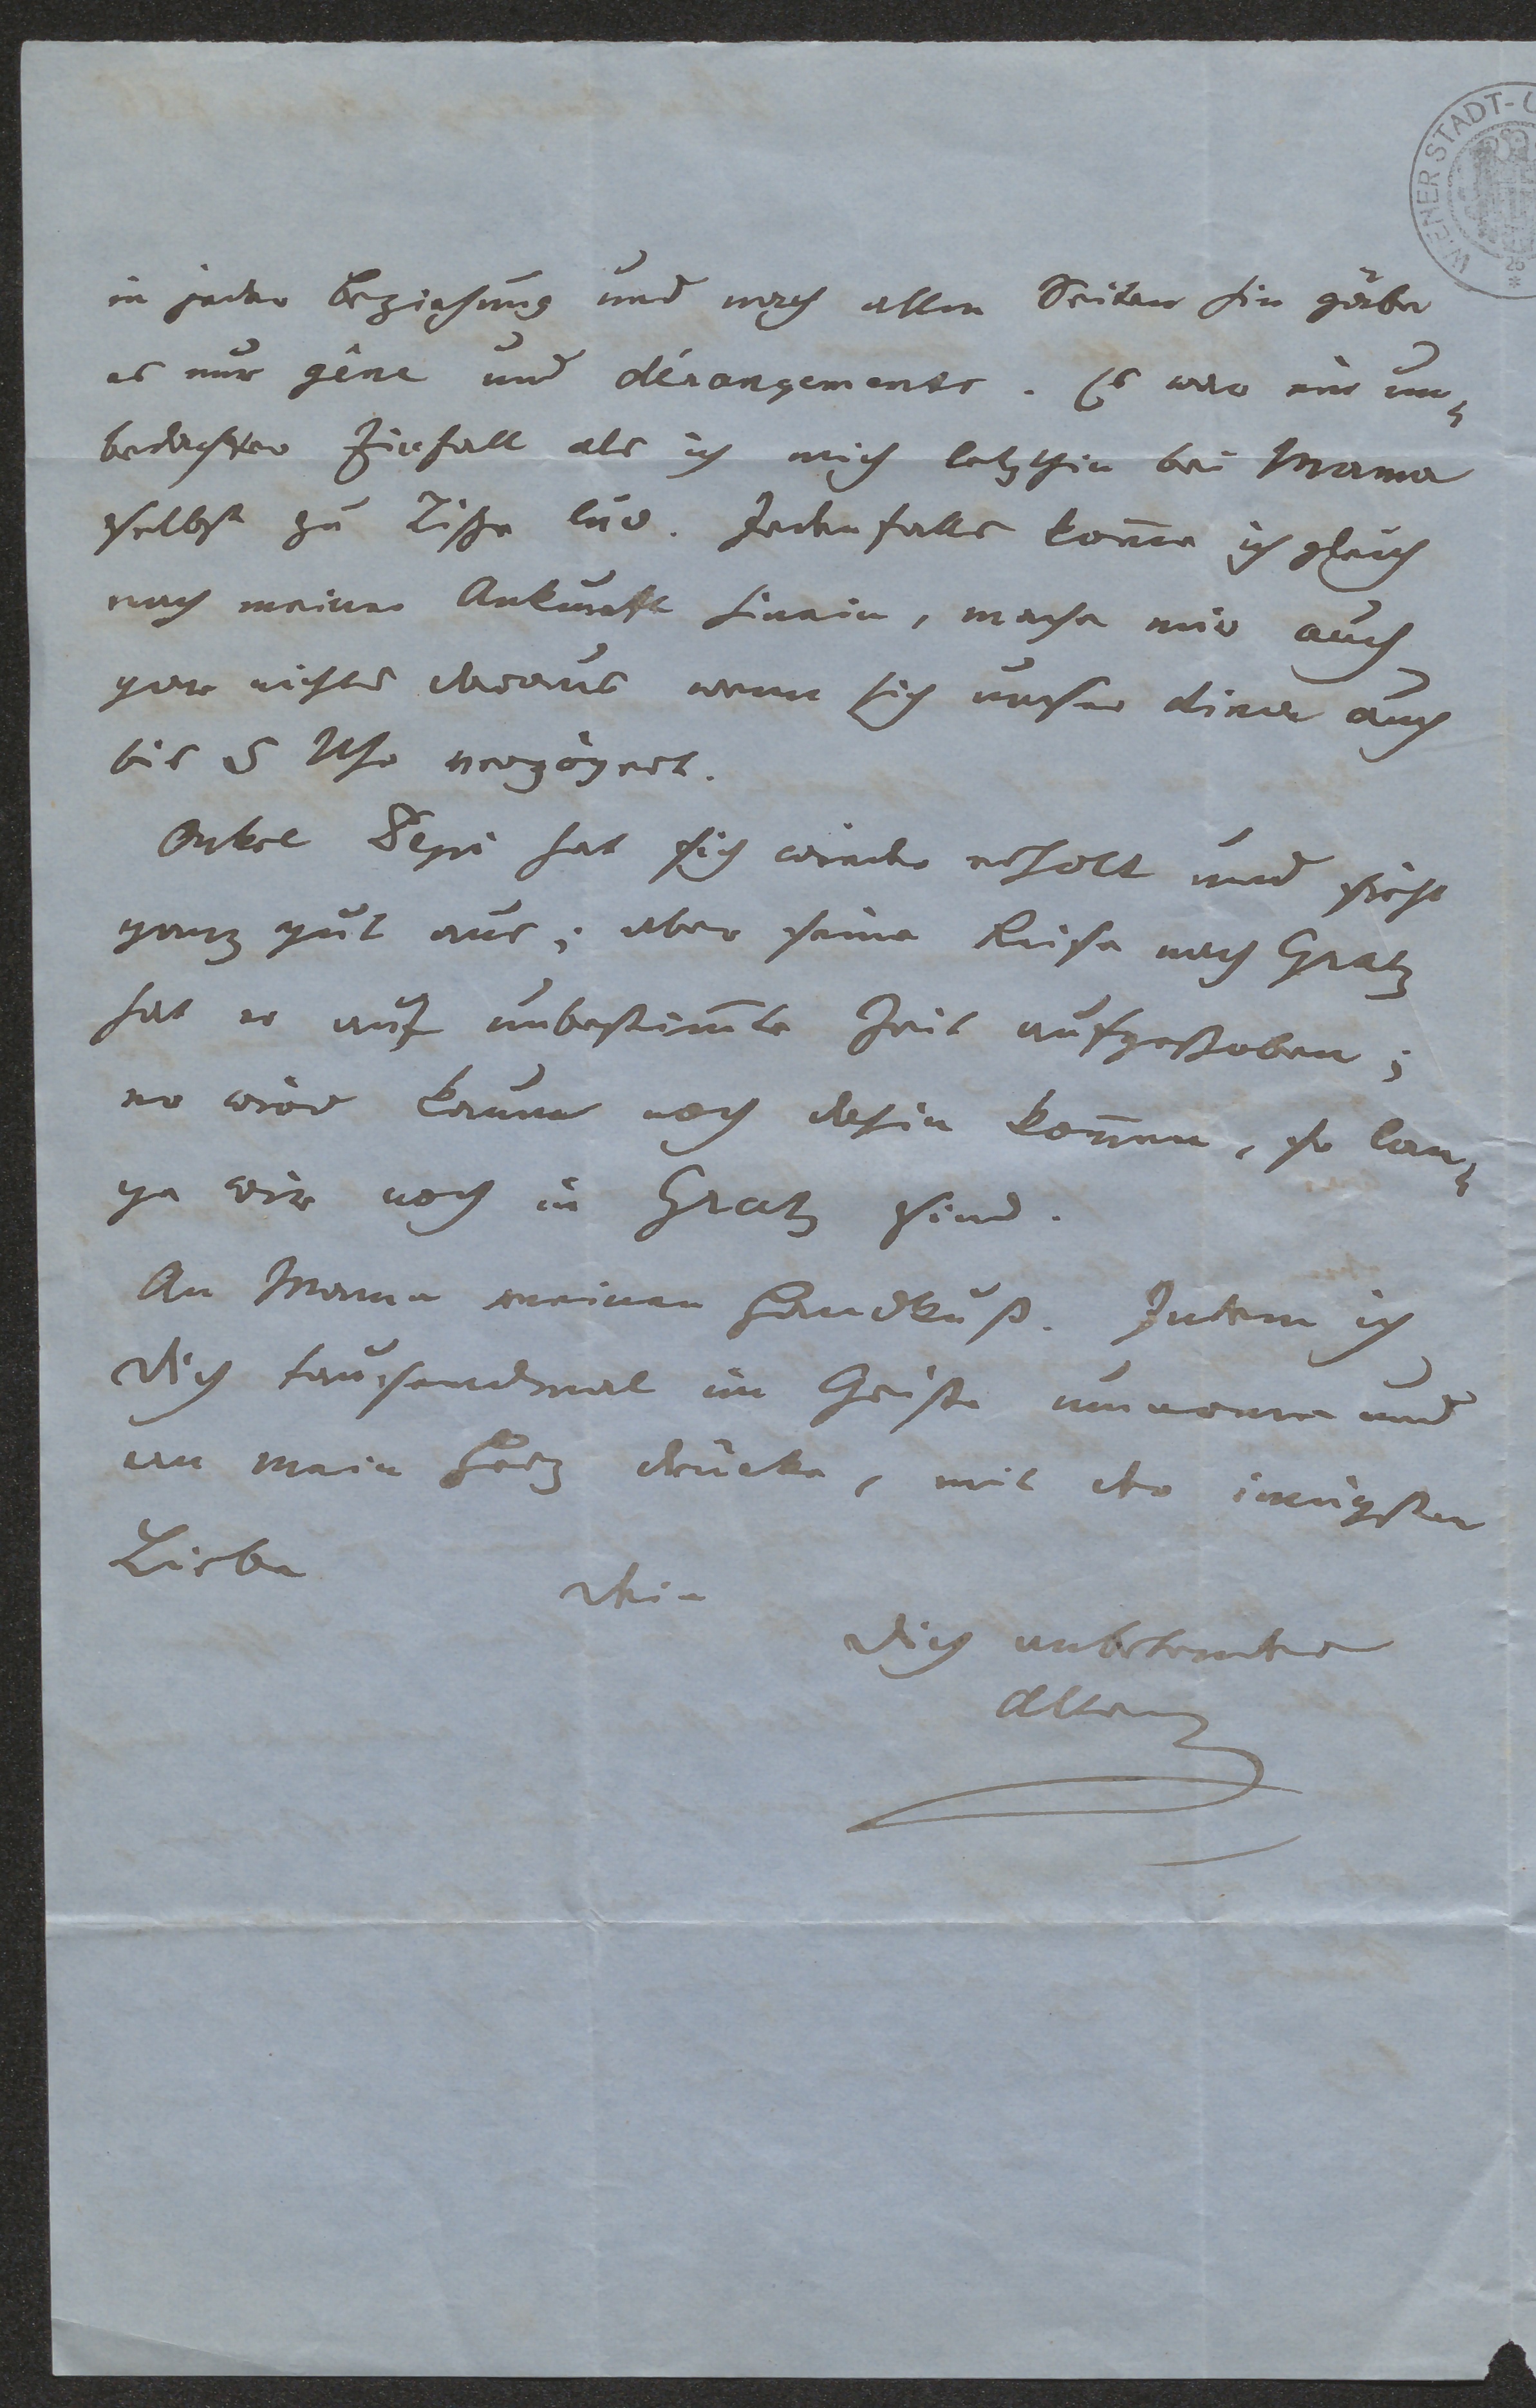 WIENER STADT-
26
in jeder Beziehung und nach allen Seiten hin gäbe
es nur gêne und dérangements. Es war ein un=
bedachter Einfall als ich mich letzthin bei Mama
selbst zu Tische lud. Jedenfalls kom̅e ich gleich
nach meiner Ankunft hinein, mache mir auch
gar nichts daraus wenn sich unser diner auch
bis 5 Uhr verzögert.
Onkel Pepi hat sich wieder erholt und sieht
ganz gut aus; aber seine Reise nach Gratz
hat er auf unbestim̅te Zeit aufgeschoben;
er wird kaum noch dahin kom̅en, so lan=
ge wir noch in Gratz sind.
An Mama meinen Handkuß. Indem ich
Dich tausendmal im Geiste umarme und
an mein Herz drücke, mit der innigsten
Liebe
Dein
Dich anbetender